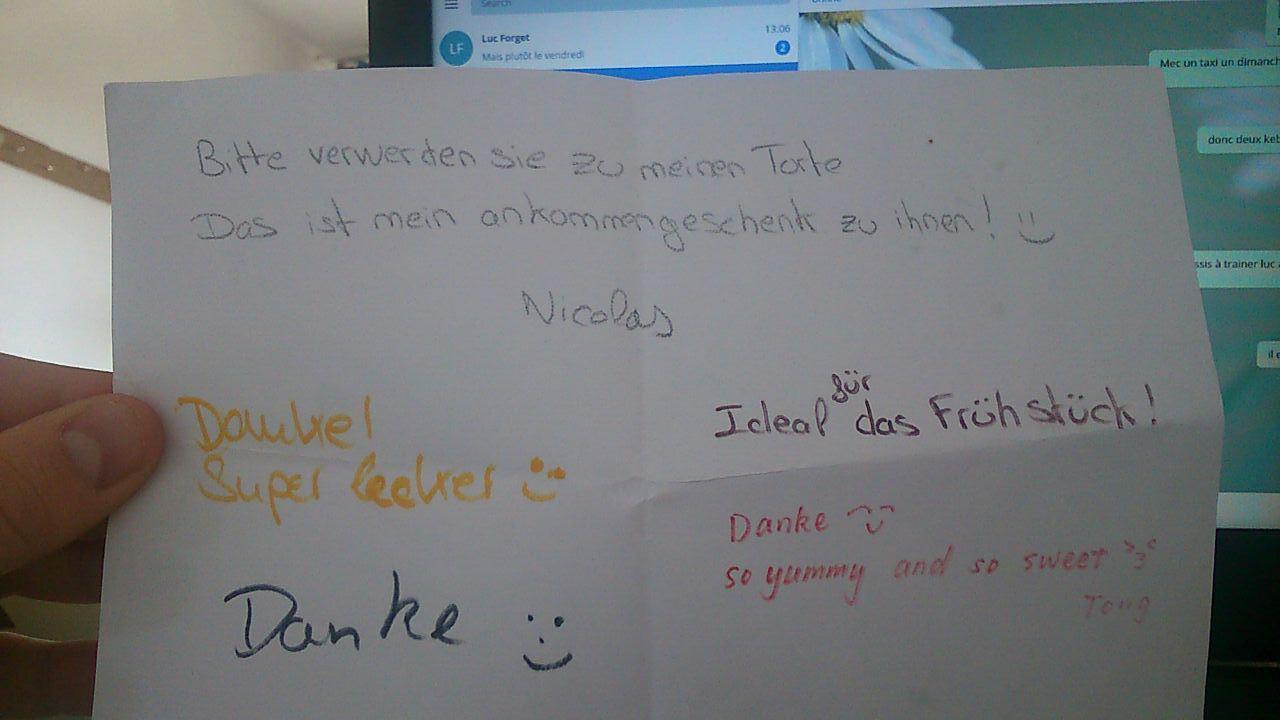 Search
Luc Forget
13:06
LF
Mais plutôt le vendredi
2
Mec un taxi un dimanch
donc deux keb
ssis à trainer luc
il e
Bitte verwerden sie zu meinen Torte
Das ist mein ankommengeschenk zu ihnen! :)
Nicolas
Danke!
Super lecker :)
Ideal für das Frühstück!
Danke
so yummy and so sweet
Tong
Danke :)